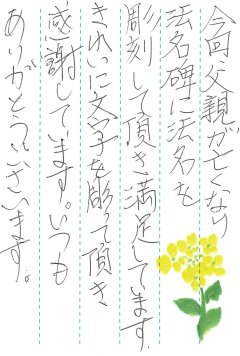 今回父親が亡くなり
法名碑に法名を
彫刻して頂き満足しています。
きれいに文字を彫って頂き
感謝しています。いつも
ありがとうございます。